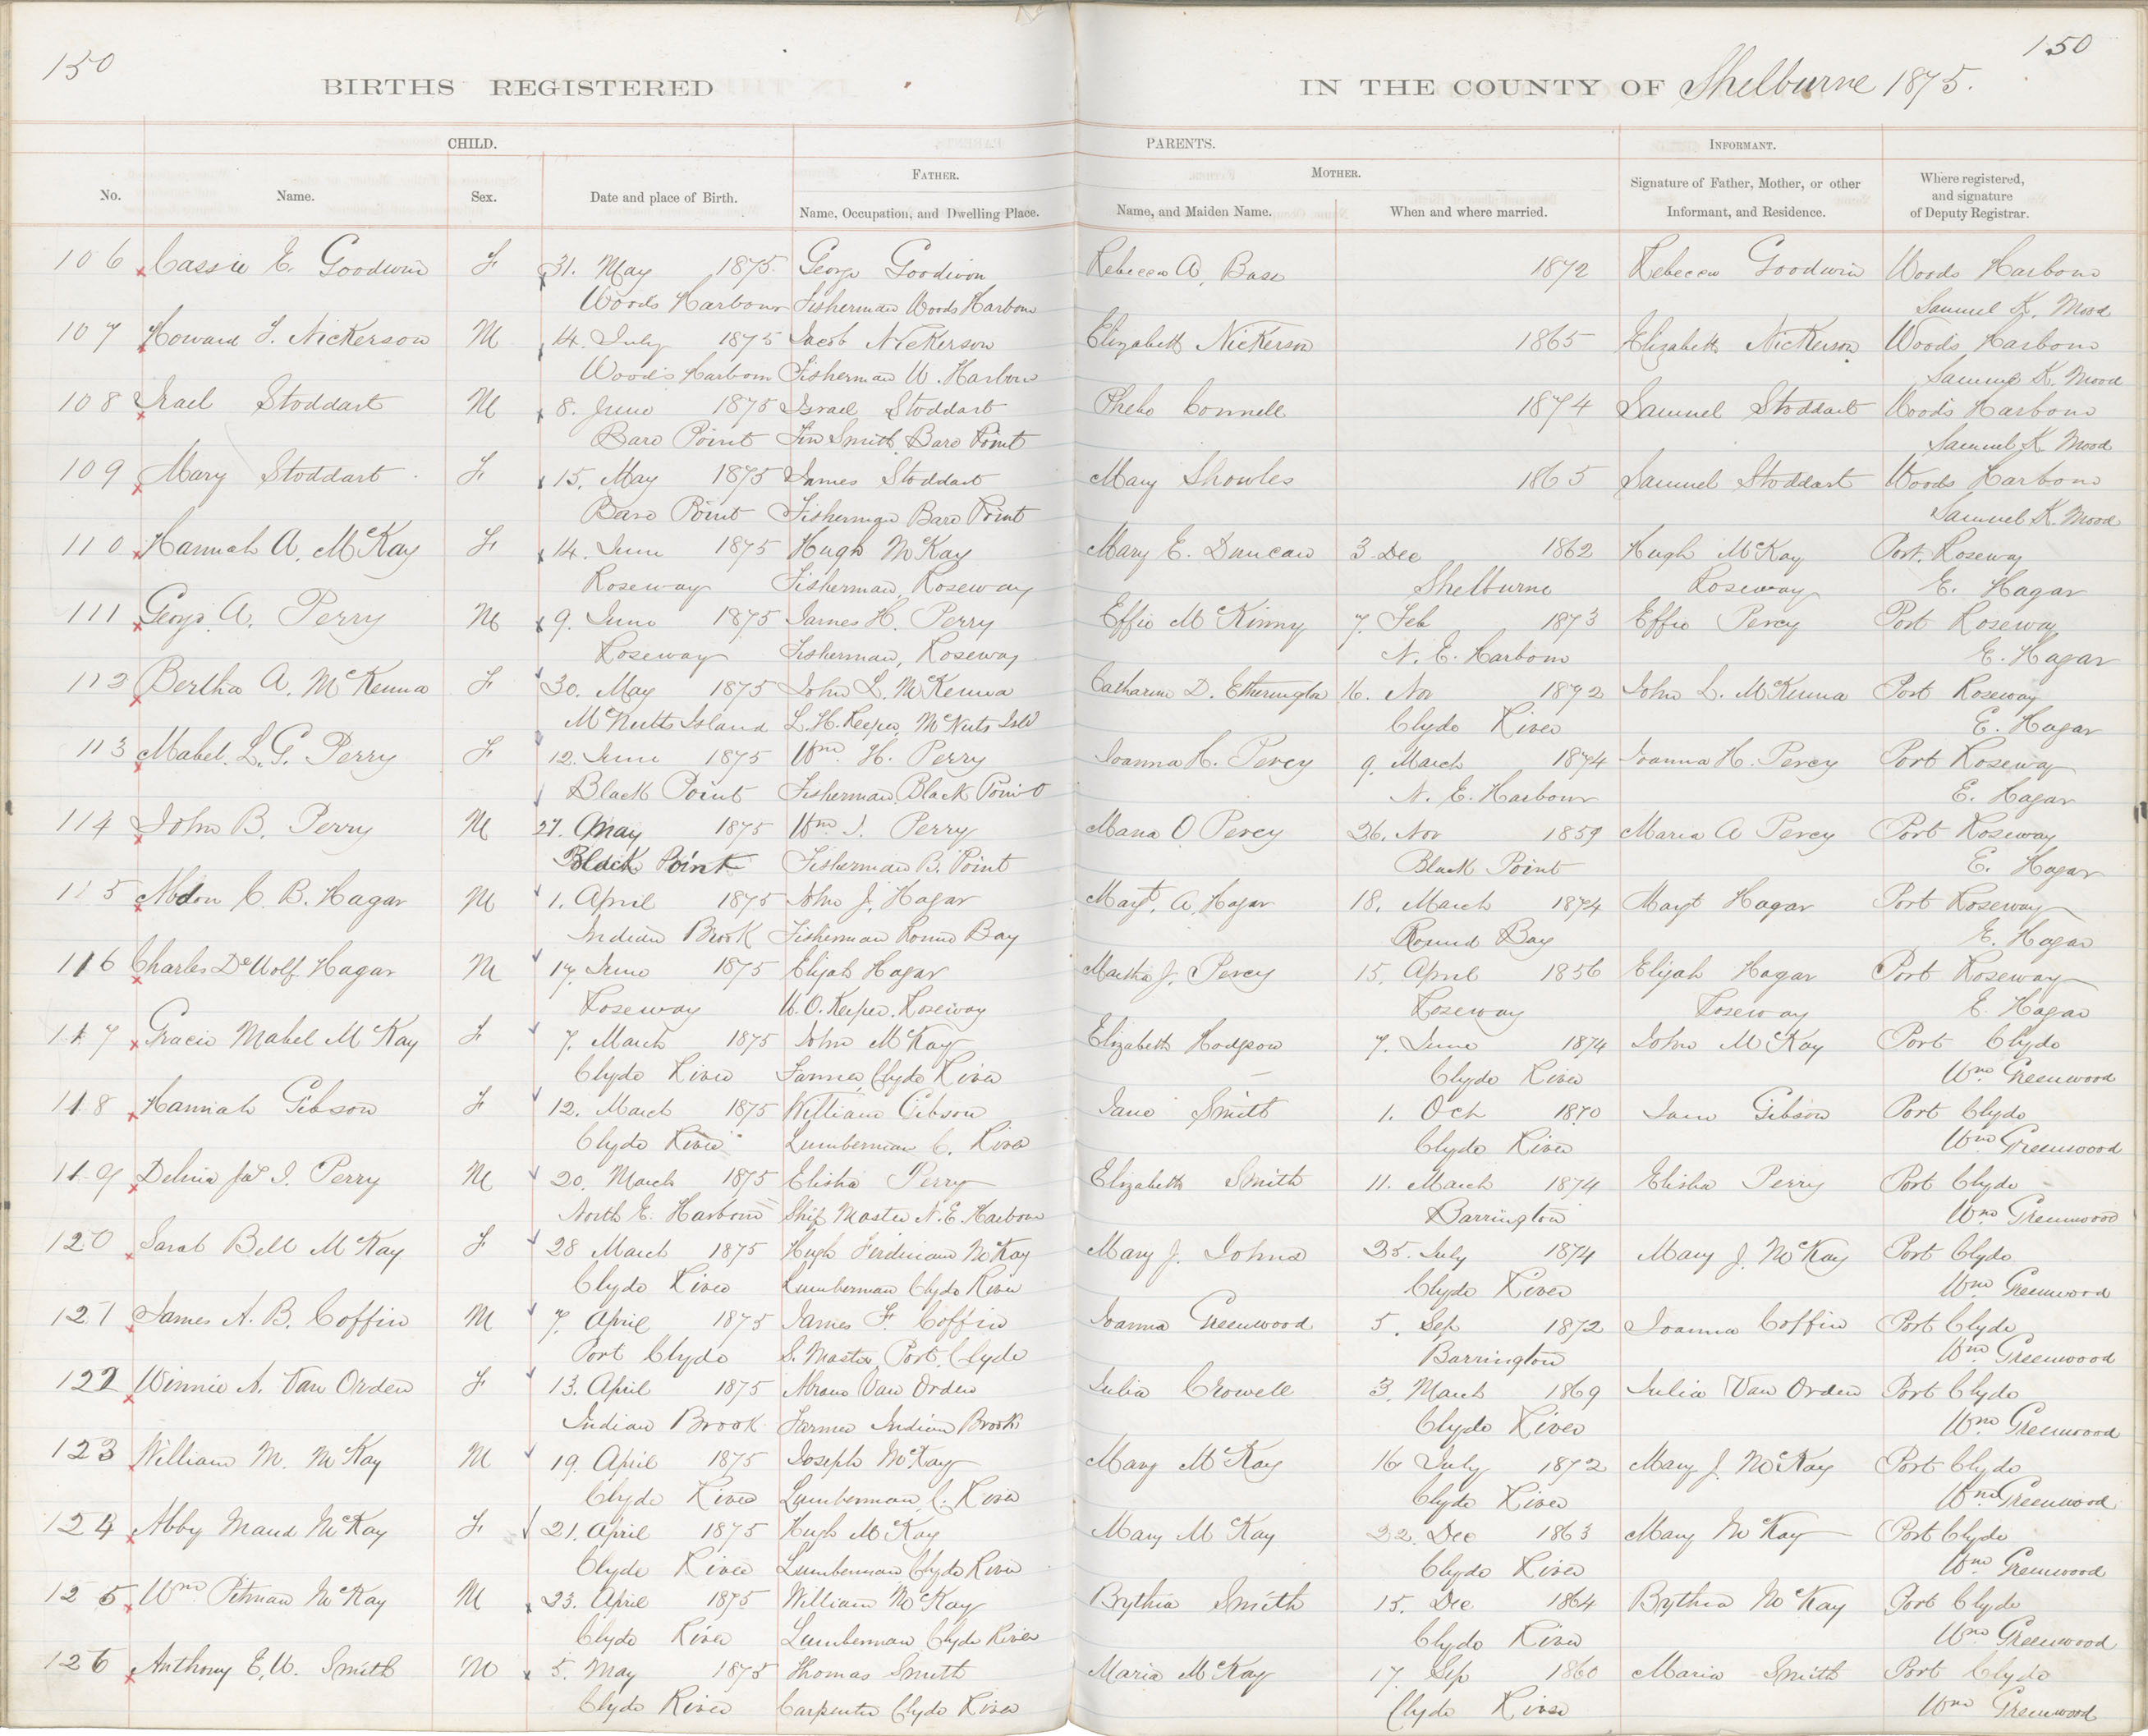 150
150
BIRTHS REGISTERED
IN THE COUNTY OF Shelburne 1875.
CHILD.
PARENTS.
INFORMANT.
No.
Name.
Sex.
Date and place of Birth.
FATHER.
Name, Occupation, and Dwelling Place.
MOTHER.
Name, and Maiden Name.
When and where married.
Signature of Father, Mother, or other
Informant, and Residence.
Where registered,
and signature
of Deputy Registrar.
106 Cassie E. Goodwin F 31. May 1875. George Goodwin Rebecca A. Bass 1872 Rebecca Goodwin Woods Harbour
Woods Harbour Fisherman Woods Harbour Samuel K. Mood
107 Howard F. Nickerson M 14. July 1875 Jacob Nickerson Elizabeth Nickerson 1865 Elizabeth Nickerson Woods Harbour
Woods Harbour Fisherman W. Harbour Samuel K. Mood
108 Israel Stoddart M 8. June 1875 Israel Stoddart Phebe Connell 1874 Samuel Stoddart Woods Harbour
Bare Point Tin Smith Bare Point Samuel K Mood
109 Mary Stoddart F 15. May 1875 James Stoddart Mary Showles 1865 Samuel Stoddart Woods Harbour
Bare Point Fisherman Bare Point Samuel K. Mood
110 Hannah A. McKay F 14. June 1875 Hugh McKay Mary E. Duncan 3 Dec 1862 Hugh McKay Port. Roseway
Roseway Fisherman, Roseway Shelburne Roseway E. Hagar
111 George A. Perry M 9. June 1875 James H. Perry Effie McKinny 7. Feb 1873 Effie Percy Port Roseway
Roseway Fisherman, Roseway N. E. Harbour E. Hagar
112 Bertha A. McKenna F 30. May 1875 John L. McKenna Catharine D. Etherington 16. Nov 1872 John L. McKenna Port Roseway
McNutts Island L. H. Keeper, McNuts Isld Clyde River E. Hagar
113 Mabel. L. G. Perry F 12. June 1875 Wm. H. Perry Joanna H. Percy 9. March 1874 Joanna H. Percy Port Roseway
Black Point Fisherman, Black Point N. E. Harbour E. Hagar
114 John B. Perry M 27. May 1875 Wm J. Perry Maria O Percy 26. Nov 1859 Maria A Percy Port Roseway
Black Point Fisherman B. Point Black Point E. Hagar
115 C. B. Hagar M 1. April 1875 John J. Hagar Margt. A. Hagar 18. March 1874 Margt Hagar Port Roseway
Indian Brook Fisherman Round Bay Round Bay E. Hagar
116 Charles DeWolf Hagar M 17. June 1875 Elijah Hagar Martha J. Percy 15. April 1856 Elijah Hagar Port Roseway
Roseway W. O. Keeper. Roseway Roseway Roseway E. Hagar
117 Gracie Mabel McKay F 7. March 1875 John McKay Elizabeth Hodgson 7. June 1874 John McKay Port Clyde
Clyde River Farmer, Clyde River Clyde River Wm Greenwood
118 Hannah Gibson F 12. March 1875 William Gibson Jane Smith 1. Oct 1870 Jane Gibson Port Clyde
Clyde River Lumberman C. River Clyde River Wm Greenwood
119 Perry M 20. March 1875 Elisha Perry Elizabeth Smith 11. March 1874 Elisha Perry Port Clyde
North E. Harbour Ship Master N. E Harbour Barrington Wm. Greenwood
120 Sarah Bell McKay F 28 March 1875 Hugh Ferdinand McKay Mary J. Johns 25. July 1874 Mary J. McKay Port Clyde
Clyde River Lumberman Clyde River Clyde River Wm Greenwood
121 James A. B. Coffin M 7. April 1875 James F. Coffin Joanna Greenwood 5. Sep 1872 Joanna Coffin Port Clyde
Port Clyde S. Master, Port Clyde Barrington Wm Greenwood
122 Winnie A. Van Orden F 13. April 1875 Abram Van Orden Julia Crowell 3. March 1869 Julia Van Orden Port Clyde
Indian Brook Farmer Indian Brook Clyde River Wm Greenwood
123 William M. McKay M 19. April 1875 Joseph McKay Mary McKay 16 July 1872 Mary J. McKay Port Clyde
Clyde River Lumberman, C. River Clyde River Wm Greenwood
124 Abby Maud McKay F 21. April 1875 Hugh McKay Mary McKay 22. Dec 1863 Mary McKay Port Clyde
Clyde River Lumberman, Clyde River Clyde River Wm Greenwood
125 Wm Pitman McKay M 23. April 1875 William McKay Bythia Smith 15. Dec 1864 Bythia McKay Port Clyde
Clyde River Lumberman Clyde River Clyde River Wm Greenwood
126 Anthony E. W. Smith M 5. May 1875 Thomas Smith Maria McKay 17. Sep 1860 Maria Smith Port Clyde
Clyde River Carpenter Clyde River Clyde River Wm Greenwood